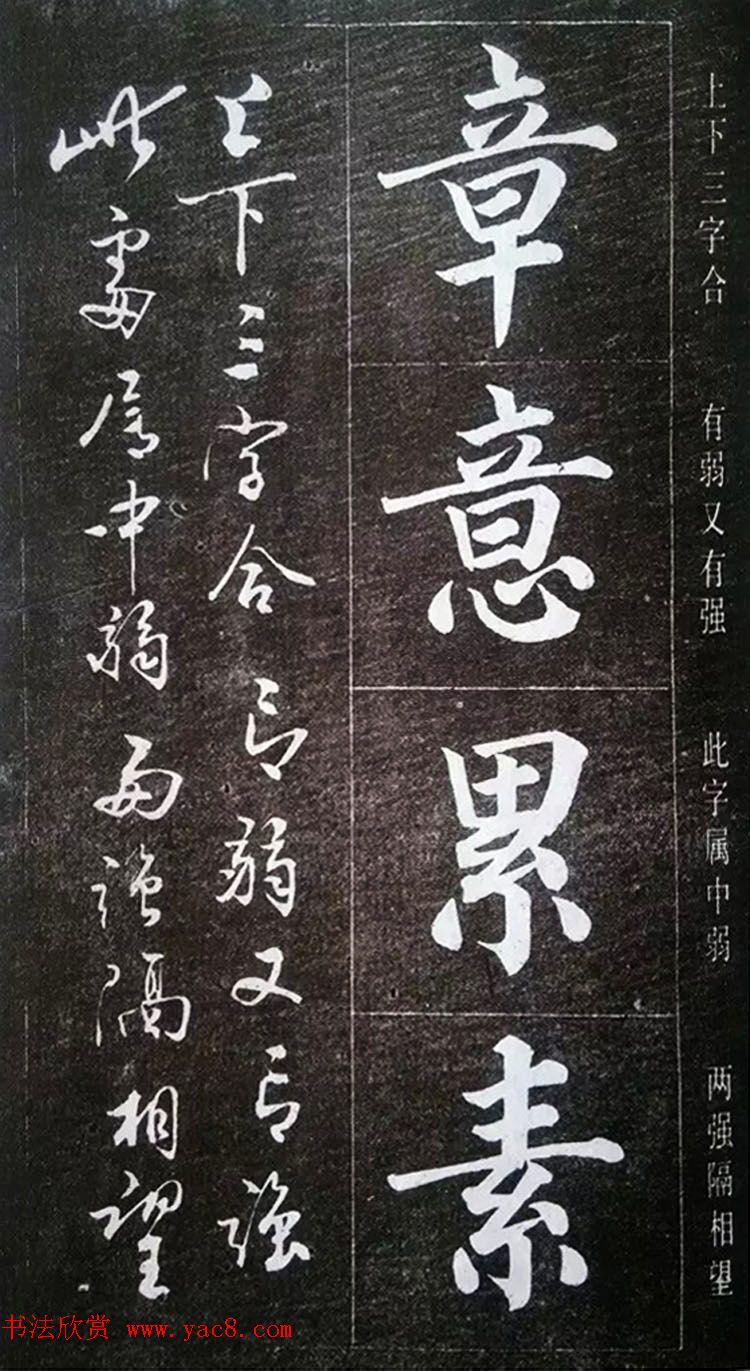 上下三字合 有弱又有强 此字属中弱 两强隔相望
章意累素
上下三字合 有弱又有强
此属中弱 两强隔相望
书法欣赏 www.yac8.com